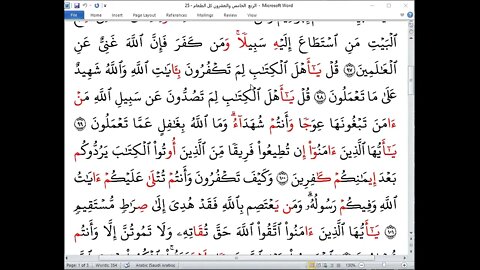 25 - الربع الخامس والعشرون كل الطعام - Microsoft Word
File Home Insert Page Layout References Mailings Review View
ٱلۡبَيۡتِ مَنِ ٱسۡتَطَاعَ إِلَيۡهِ سَبِيلٗاۚ وَمَن كَفَرَ فَإِنَّ ٱللَّهَ غَنِيٌّ عَنِ
ٱلۡعَٰلَمِينَ ٩٧ قُلۡ يَٰٓأَهۡلَ ٱلۡكِتَٰبِ لِمَ تَكۡفُرُونَ بِـَٔايَٰتِ ٱللَّهِ وَٱللَّهُ شَهِيدٌ
عَلَىٰ مَا تَعۡمَلُونَ ٩٨ قُلۡ يَٰٓأَهۡلَ ٱلۡكِتَٰبِ لِمَ تَصُدُّونَ عَن سَبِيلِ ٱللَّهِ مَنۡ
ءَامَنَ تَبۡغُونَهَا عِوَجٗا وَأَنتُمۡ شُهَدَآءُۗ وَمَا ٱللَّهُ بِغَٰفِلٍ عَمَّا تَعۡمَلُونَ ٩٩
يَٰٓأَيُّهَا ٱلَّذِينَ ءَامَنُوٓاْ إِن تُطِيعُواْ فَرِيقٗا مِّنَ ٱلَّذِينَ أُوتُواْ ٱلۡكِتَٰبَ يَرُدُّوكُم
بَعۡدَ إِيمَٰنِكُمۡ كَٰفِرِينَ ١٠٠ وَكَيۡفَ تَكۡفُرُونَ وَأَنتُمۡ تُتۡلَىٰ عَلَيۡكُمۡ ءَايَٰتُ
ٱللَّهِ وَفِيكُمۡ رَسُولُهُۥۗ وَمَن يَعۡتَصِم بِٱللَّهِ فَقَدۡ هُدِيَ إِلَىٰ صِرَٰطٖ مُّسۡتَقِيمٖ
١٠١ يَٰٓأَيُّهَا ٱلَّذِينَ ءَامَنُواْ ٱتَّقُواْ ٱللَّهَ حَقَّ تُقَاتِهِۦ وَلَا تَمُوتُنَّ إِلَّا وَأَنتُم
Page: 1 of 3 Words: 354 Arabic (Saudi Arabia) 130%